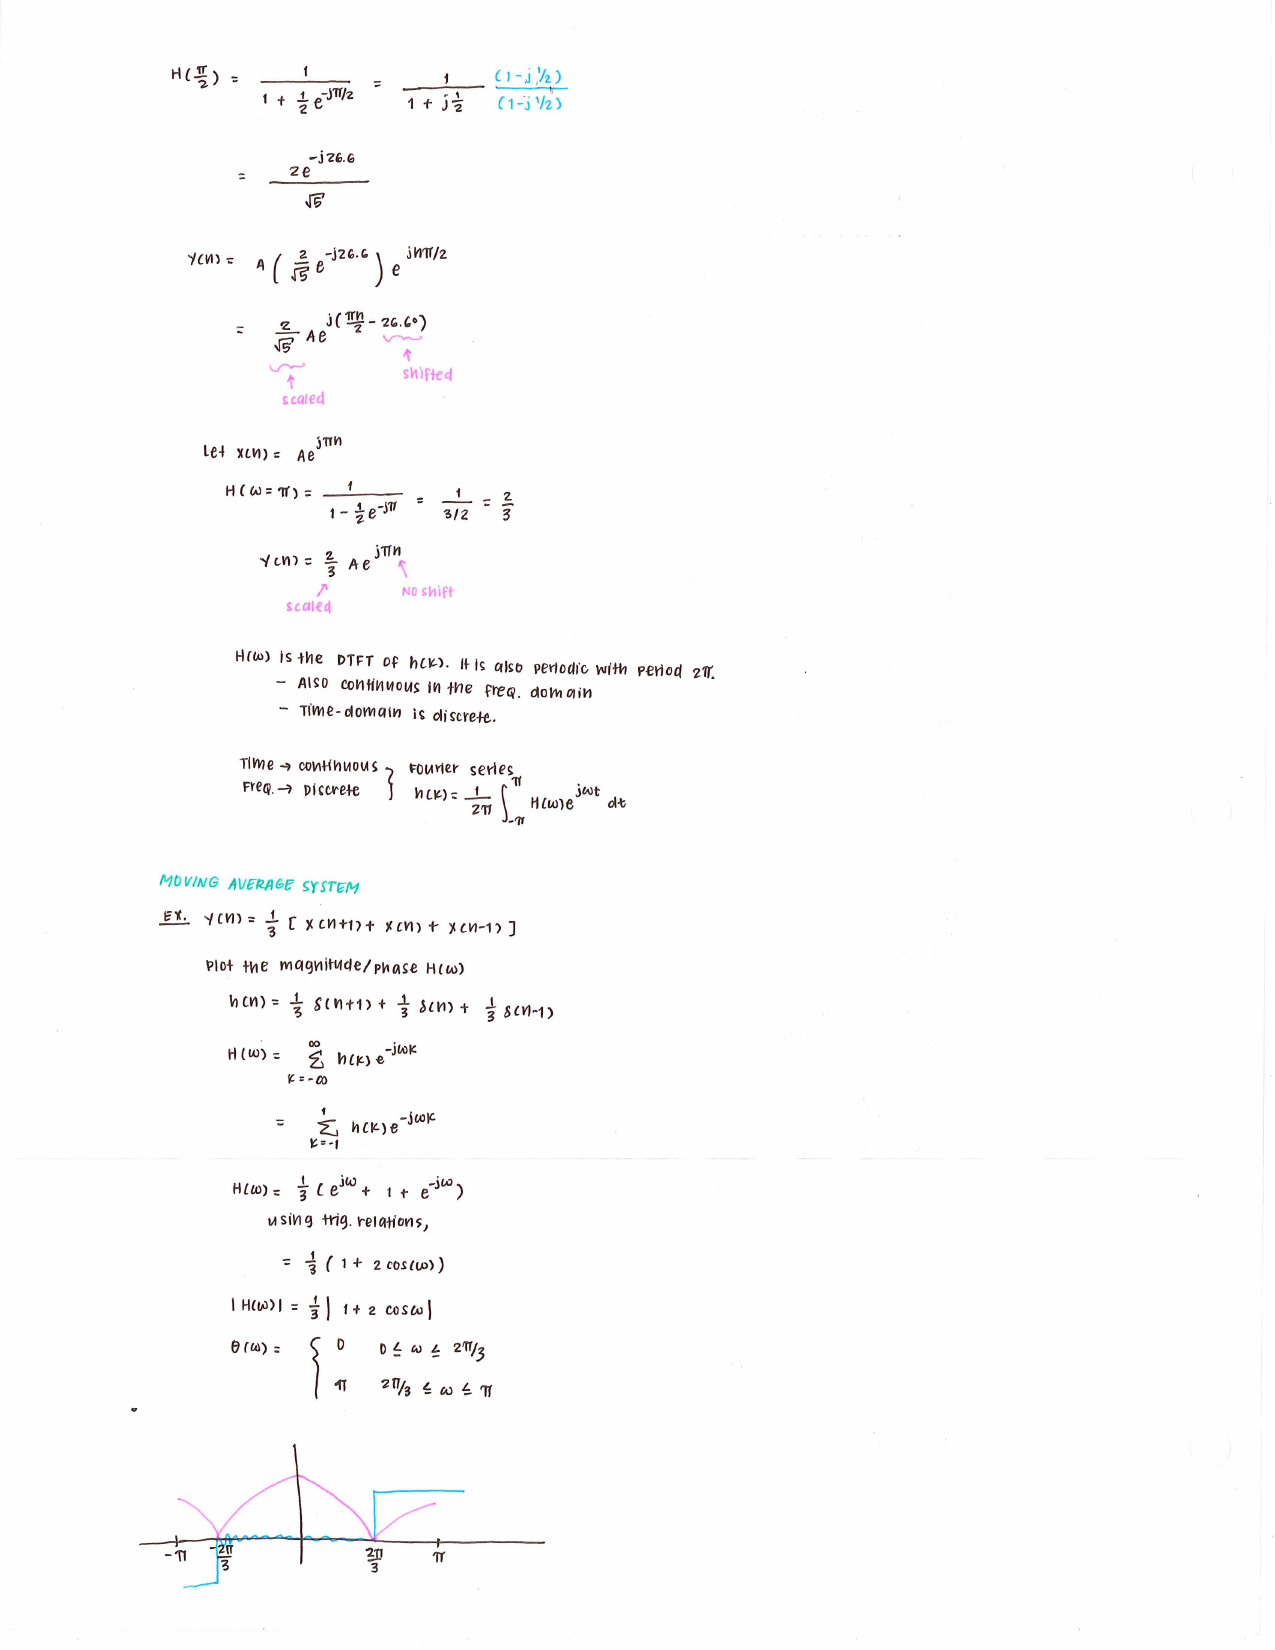 H(π/2) = 1 / (1 + 1/2 e^{-jπ/2}) = 1 / (1 + j 1/2) (1-j 1/2) / (1-j 1/2)
= 2e^{-j26.6} / √5
y(n) = A ( 2/√5 e^{-j26.6} ) e^{jnπ/2}
= 2/√5 A e^{j(πn/2 - 26.6°)}
shifted
scaled
Let x(n) = Ae^{jπn}
H(ω = π) = 1 / (1 - 1/2 e^{-jπ}) = 1 / (3/2) = 2/3
y(n) = 2/3 Ae^{jπn}
scaled NO shift
H(ω) is the DTFT of h(k). It is also periodic with period 2π.
- Also continuous in the freq. domain
- Time-domain is discrete.
Time → continuous } Fourier series
Freq. → Discrete h(k) = 1/2π ∫_{-π}^{π} H(ω)e^{jωt} dt
MOVING AVERAGE SYSTEM
EX. y(n) = 1/3 [ x(n+1) + x(n) + x(n-1) ]
Plot the magnitude/phase H(ω)
h(n) = 1/3 δ(n+1) + 1/3 δ(n) + 1/3 δ(n-1)
H(ω) = ∑_{k=-∞}^{∞} h(k) e^{-jωk}
= ∑_{k=-1}^{1} h(k)e^{-jωk}
H(ω) = 1/3 ( e^{jω} + 1 + e^{-jω} )
using trig. relations,
= 1/3 ( 1 + 2 cos(ω) )
|H(ω)| = 1/3 | 1 + 2 cosω |
θ(ω) = { 0 0 ≤ ω ≤ 2π/3
π 2π/3 ≤ ω ≤ π
-π -2π/3 2π/3 π